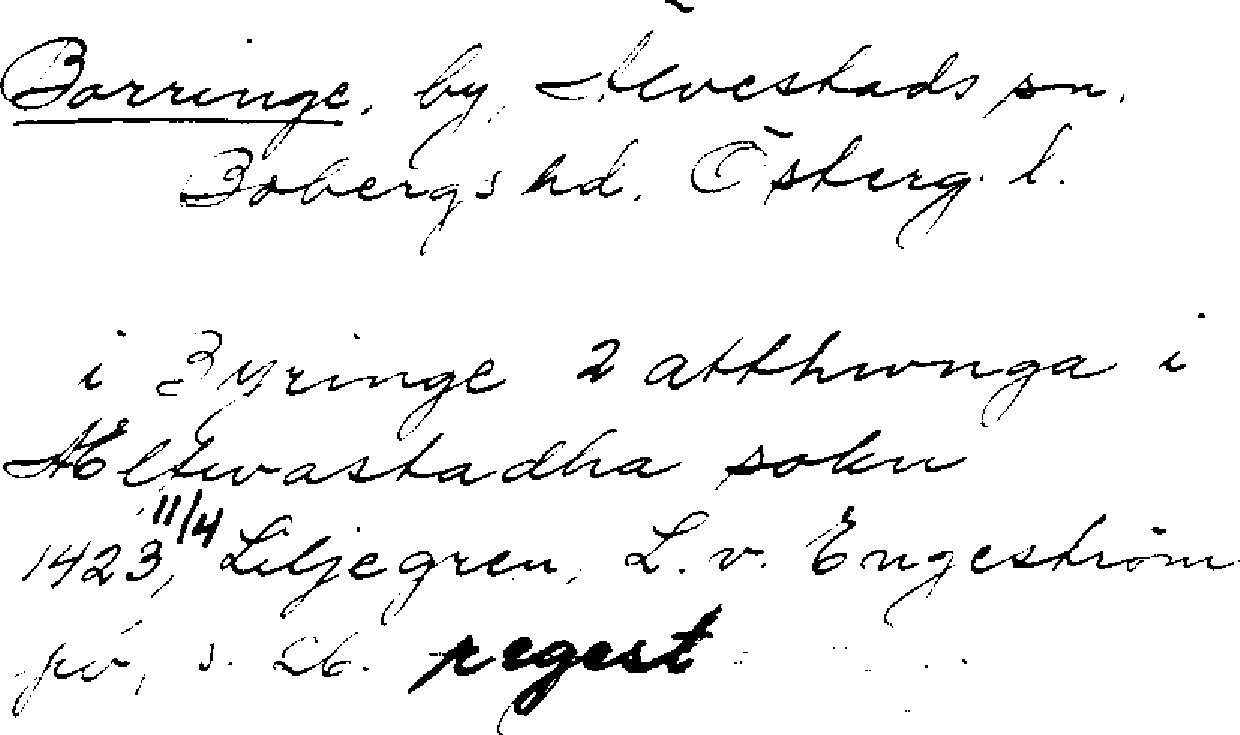 Borringe, by, Älvestads sn.
Bobergs hd. Österg. l.
i Byringe 2 atthunga i
Ælwastadha sokn
1423 11/4, Liljegren, L. v. Engeström
s. 26. regest